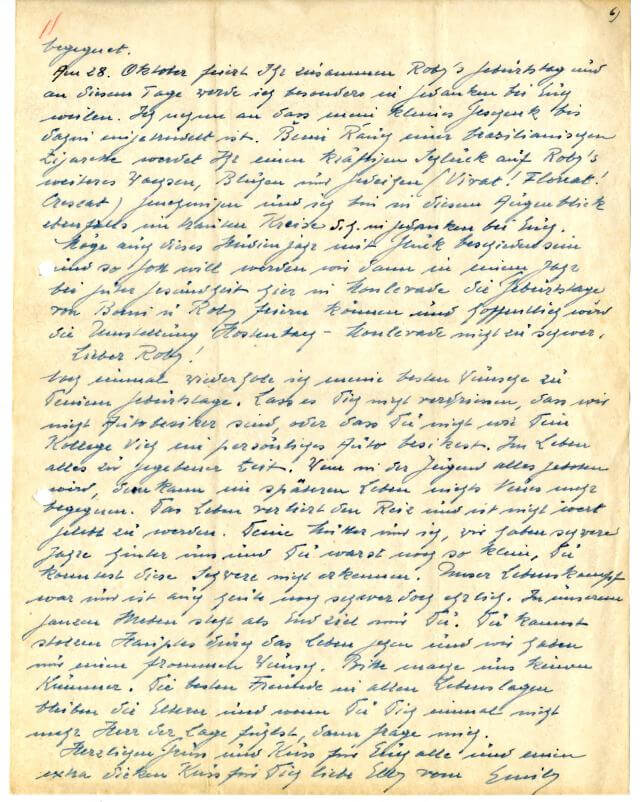 11 6)
begegnet.
Am 28. Oktober feiert Ihr zusammen Roby's Geburtstag und
an diesem Tage werde ich besonders in Gedanken bei Euch
weilen. Ich nehme an dass mein kleines Geschenk bis
dahin eingetrudelt ist. Beim Rauch einer brazilianischen
Zigarette werdet Ihr einen kräftigen Schluck auf Roby's
weiteres Wachsen, Blühen und Gedeihen (Vivat! Floreat!
Crescat) genehmigen und ich bin in diesem Augenblick
ebenfalls im trauten Kreise d.h. in Gedanken bei Euch.
Möge auch dieses Studienjahr mit Glück beschieden sein
und so Gott will werden wir dann in einem Jahr
bei guter Gesundheit hier in Monlevade die Geburtstage
von Bomi u Roby feiern können und hoffentlich wird
die Umstellung Hostenbach - Monlevade nicht zu schwer.
Lieber Roby!
Noch einmal wiederhole ich meine besten Wünsche zu
Deinem Geburtstage. Lass es Dich nicht verdriessen, dass wir
nicht Autobesitzer sind, oder dass Du nicht wie Dein
Kollege ein persönliches Auto besitzest. Im Leben
alles zu gegebener Zeit. Wem in der Jugend alles geboten
wird, dem kann im späteren Leben nichts Neues mehr
begegnen. Das Leben verliert den Reiz und ist nicht wert
gelebt zu werden. Deine Mutter und ich, wir haben schwere
Jahre hinter uns und Du warst noch so klein, Du
konntest diese Schwere nicht erkennen. Unser Lebenskampf
war und ist auch heute noch schwer doch ehrlich. In unserem
ganzen Streben steht als Endziel nur Du. Du kannst
stolzen Hauptes durch das Leben gehen und wir haben
nur einen frommen Wunsch. Bitte mache uns keinen
Kummer. Die besten Freunde in allen Lebenslagen
bleiben die Eltern und wenn Du Dich einmal nicht
mehr Herr der Lage fühlst, dann frage mich.
Herzlichen Gruss und Kuss für Euch alle und einen
extra dicken Kuss für Dich liebe Elly vom Emil